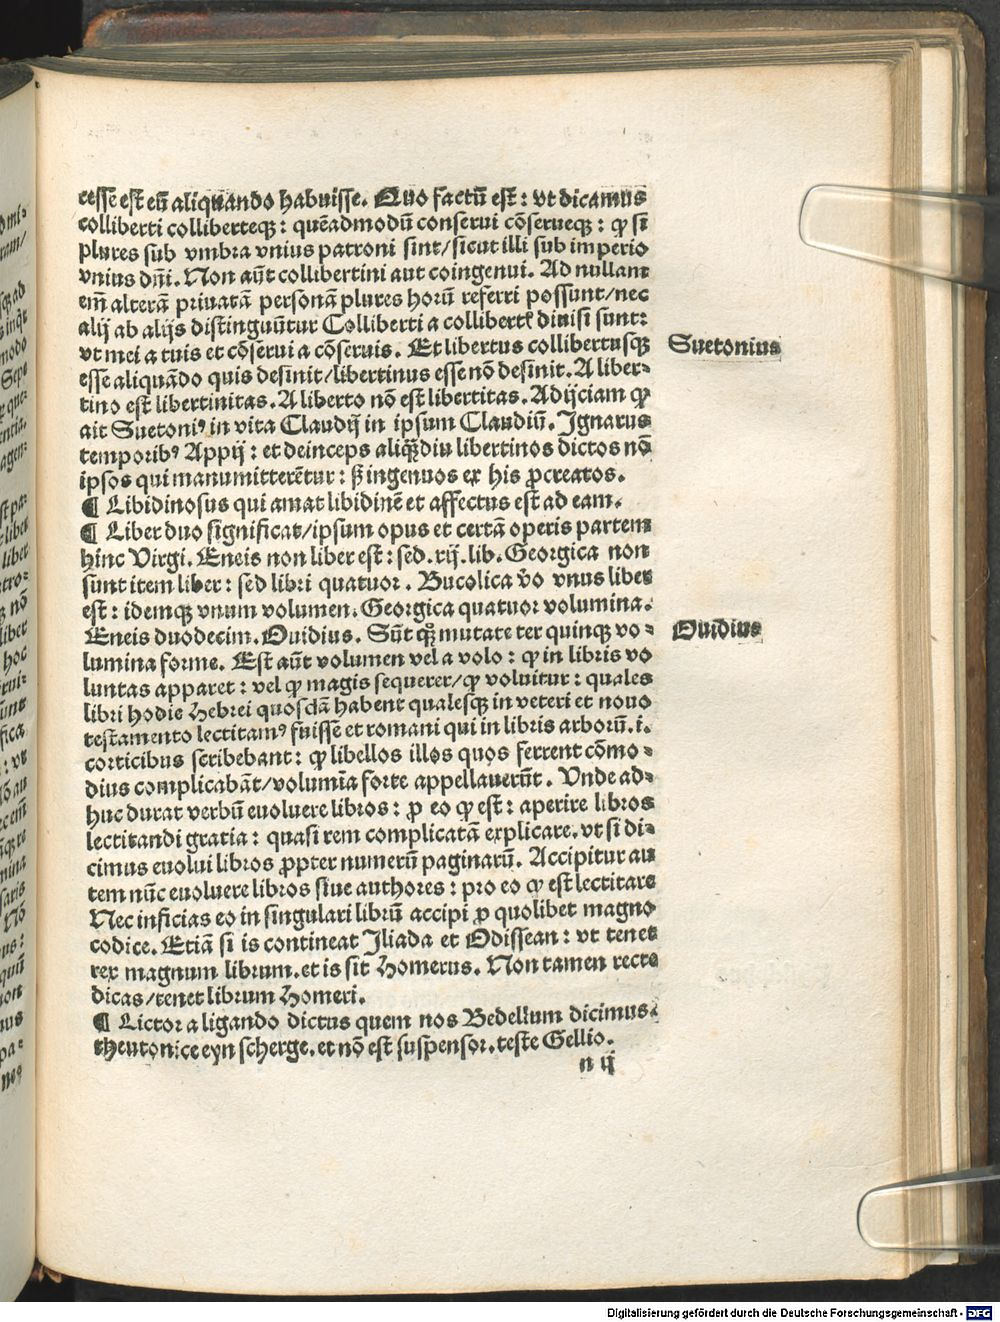 cesse est eū aliquando habuisse. Quo factū est: vt dicamus
colliberti colliberteqꝫ: quēadmodū conserui cōserueqꝫ: ꝙ si
plures sub vmbra vnius patroni sint/sicut illi sub imperio
vnius dn̄i. Non aūt collibertini aut coingenui. Ad nullam
em̄ alterā priuatā personā plures horū referri possunt/nec
alij ab alijs distinguūtur Colliberti a collibertꝭ diuisi sunt:
vt mei a tuis et cōserui a cōseruis. Et libertus collibertusqꝫ
Suetonius
esse aliquādo quis desinit/libertinus esse nō desinit. A liber⸗
tino est libertinitas. A liberto nō est libertitas. Adijciam ꝙ
ait Suetoniꝰ in vita Claudij in ipsum Claudiū. Ignarus
temporibꝰ Appij: et deinceps aliqͣ̄diu libertinos dictos nō
ipsos qui manumitterētur: ꝭ ingenuos ex his ꝓcreatos.
¶ Libidinosus qui amat libidinē et affectus est ad eam.
¶ Liber duo significat/ipsum opus et certā operis partem
hinc Virgi. Eneis non liber est: sed .xij. lib. Georgica non
sunt item liber: sed libri quatuor. Bucolica v̄o vnus liber
est: idemqꝫ vnum volumen. Georgica quatuor volumina.
Eneis duodecim. Ouidius. Sūt qꝫ mutate ter quinqꝫ vo⸗
Ouidius
lumina forme. Est aūt volumen vel a volo: ꝙ in libris vo
luntas apparet: vel ꝙ magis sequerer/ꝙ voluitur: quales
libri hodie Hebrei quosdā habent qualesqꝫ in veteri et nouo
testamento lectitamꝰ fuisse et romani qui in libris arborū .i.
corticibus scribebant: ꝙ libellos illos quos ferrent cōmo⸗
dius complicabāt/volumīa forte appellauerūt. Vnde ad⸗
huc durat verbū euoluere libros: ꝓ eo ꝙ est: aperire libros
lectitandi gratia: quasi rem complicatā explicare. vt si di⸗
cimus euolui libros ꝓpter numerū paginarū. Accipitur au
tem nūc euoluere libros siue authores: pro eo ꝙ est lectitare
Nec inficias eo in singulari librū accipi ꝓ quolibet magno
codice. Etiā si is contineat Iliada et Odissean: vt tenet
rex magnum librum. et is sit Homerus. Non tamen recte
dicas/tenet librum Homeri.
¶ Lictor a ligando dictus quem nos Bedellum dicimus.
theutonice eyn scherge. et nō est suspensor. teste Gellio.
n ij
Digitalisierung gefördert durch die Deutsche Forschungsgemeinschaft - DFG